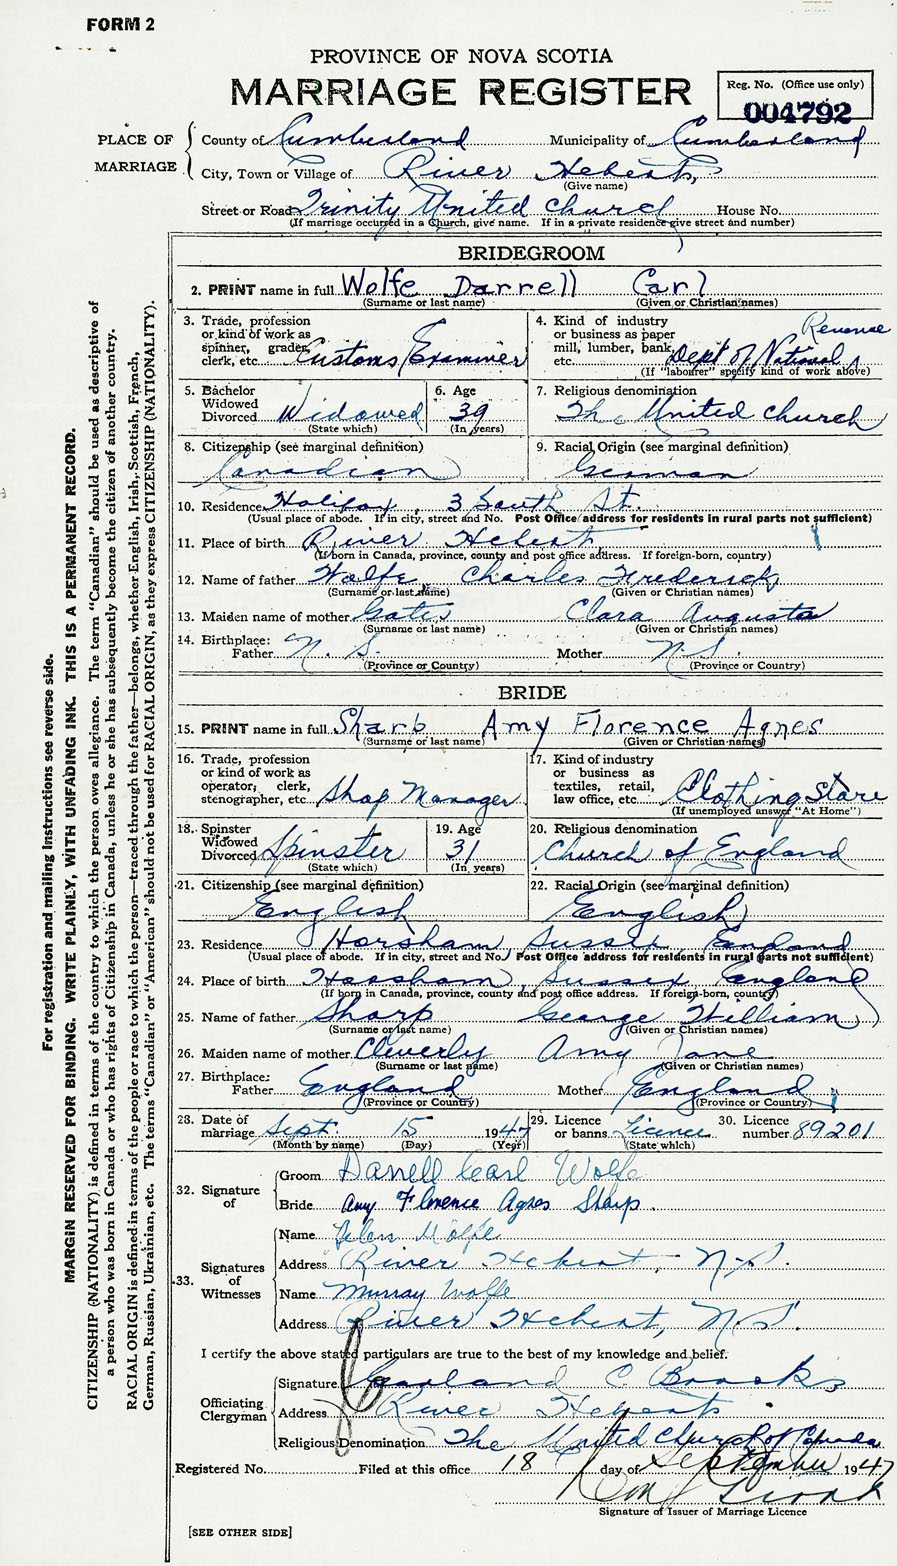 FORM 2
PROVINCE OF NOVA SCOTIA
MARRIAGE REGISTER
Reg. No. (Office use only)
004792
PLACE OF MARRIAGE
County of Cumberland Municipality of Cumberland
City, Town or Village of River Hebert,
(Give name)
Street or Road Trinity United Church House No.
(If marriage occurred in a Church, give name. If in a private residence give street and number)
BRIDEGROOM
2. PRINT name in full Wolfe Darrell Carl
(Surname or last name) (Given or Christian names)
3. Trade, profession or kind of work as spinner, grader, clerk, etc. Customs Examiner
4. Kind of industry or business as paper mill, lumber, bank, etc. Dept of National Revenue
(If "labourer" specify kind of work above)
5. Bachelor Widowed Divorced Widowed
(State which)
6. Age 39
(In years)
7. Religious denomination
The United Church
8. Citizenship (see marginal definition)
Canadian
9. Racial Origin (see marginal definition)
German
10. Residence Halifax, 3 South St.
(Usual place of abode. If in city, street and No. Post Office address for residents in rural parts not sufficient)
11. Place of birth River Hebert
(If born in Canada, province, county and post office address. If foreign-born, country)
12. Name of father Wolfe Charles Frederick
(Surname or last name) (Given or Christian names)
13. Maiden name of mother Gates Clara Augusta
(Surname or last name) (Given or Christian names)
14. Birthplace:
Father N. S. Mother N.S.
(Province or Country) (Province or Country)
BRIDE
15. PRINT name in full Sharp Amy Florence Agnes
(Surname or last name) (Given or Christian names)
16. Trade, profession or kind of work as operator, clerk, stenographer, etc. Shop Manager
17. Kind of industry or business as textiles, retail, law office, etc. Clothing Store
(If unemployed answer "At Home")
18. Spinster Widowed Divorced Spinster
(State which)
19. Age 31
(In years)
20. Religious denomination
Church of England
21. Citizenship (see marginal definition)
English
22. Racial Origin (see marginal definition)
English
23. Residence Horsham, Sussex, England
(Usual place of abode. If in city, street and No. Post Office address for residents in rural parts not sufficient)
24. Place of birth Horsham, Sussex England
(If born in Canada, province, county and post office address. If foreign-born, country)
25. Name of father Sharp George William
(Surname or last name) (Given or Christian names)
26. Maiden name of mother Cleverly Amy Jane
(Surname or last name) (Given or Christian names)
27. Birthplace:
Father England Mother England
(Province or Country) (Province or Country)
28. Date of marriage Sept. 15 1947
(Month by name) (Day) (Year)
29. Licence or banns Licence
(State which)
30. Licence number 89201
32. Signature of
Groom Darrell Carl Wolfe
Bride Amy Florence Agnes Sharp.
33. Signatures of Witnesses
Name Helen Wolfe
Address River Hebert, N.S.
Name Murray Wolfe
Address River Hebert, N.S
I certify the above stated particulars are true to the best of my knowledge and belief.
Officiating Clergyman
Signature Garland C. Brooks
Address River Hebert
Religious Denomination The United Church of Canada
Registered No. Filed at this office 18 day of September 1947
Signature of Issuer of Marriage Licence
[SEE OTHER SIDE]
For registration and mailing instructions see reverse side.
MARGIN RESERVED FOR BINDING. WRITE PLAINLY, WITH UNFADING INK. THIS IS A PERMANENT RECORD.
CITIZENSHIP (NATIONALITY) is defined in terms of the country to which the person owes allegiance. The term "Canadian" should be used as descriptive of
a person who was born in Canada or who has rights of Citizenship in Canada, unless he or she has subsequently become the citizen of another country.
RACIAL ORIGIN is defined in terms of the people or race to which the person—traced through the father—belongs, whether English, Irish, Scottish, French,
German, Russian, Ukrainian, etc. The terms "Canadian" or "American" should not be used for RACIAL ORIGIN, as they express CITIZENSHIP (NATIONALITY).